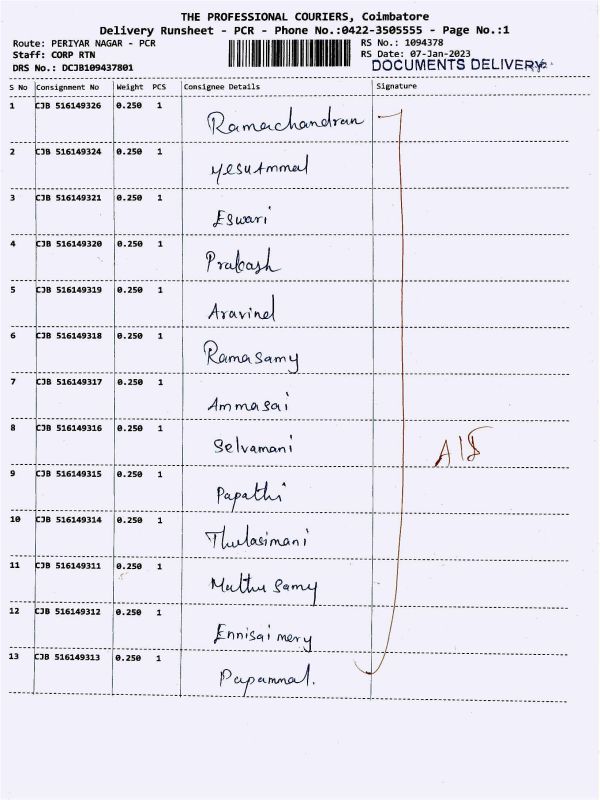 THE PROFESSIONAL COURIERS, Coimbatore
Delivery Runsheet - PCR - Phone No.:0422-3505555 - Page No.:1
Route: PERIYAR NAGAR - PCR
Staff: CORP RTN
DRS No.: DCJB109437801
RS No.: 1094378
RS Date: 07-Jan-2023
DOCUMENTS DELIVERY
S No Consignment No Weight PCS Consignee Details Signature
1 CJB 516149326 0.250 1 Ramachandran
2 CJB 516149324 0.250 1 Yesu Ammal
3 CJB 516149321 0.250 1 Eswari
4 CJB 516149320 0.250 1 Prakash
5 CJB 516149319 0.250 1 Aravind
6 CJB 516149318 0.250 1 Ramasamy
7 CJB 516149317 0.250 1 Ammasai
8 CJB 516149316 0.250 1 Selvamani
9 CJB 516149315 0.250 1 Papathi
10 CJB 516149314 0.250 1 Thulasimani
11 CJB 516149311 0.250 1 Muthu Samy
12 CJB 516149312 0.250 1 Ennisai mery
13 CJB 516149313 0.250 1 Papammal.